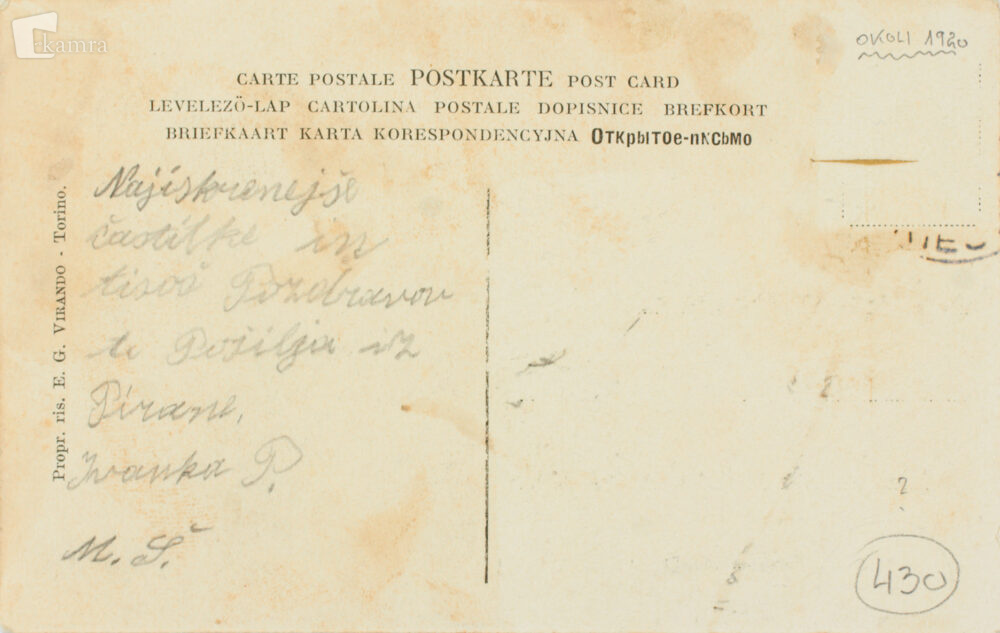 kamra
OKOLI 1920
CARTE POSTALE POSTKARTE POST CARD
LEVELEZÖ-LAP CARTOLINA POSTALE DOPISNICE BREFKORT
BRIEFKAART KARTA KORESPONDENCYJNA OTKpbITOe-nKCbMo
Propr. ris. E. G. VIRANDO - Torino.
Najiskrenejše
častitke in
tisoč Pozdravov
ti Pošilja iz
Pirane,
Ivanka P.
M. Š.
?
430